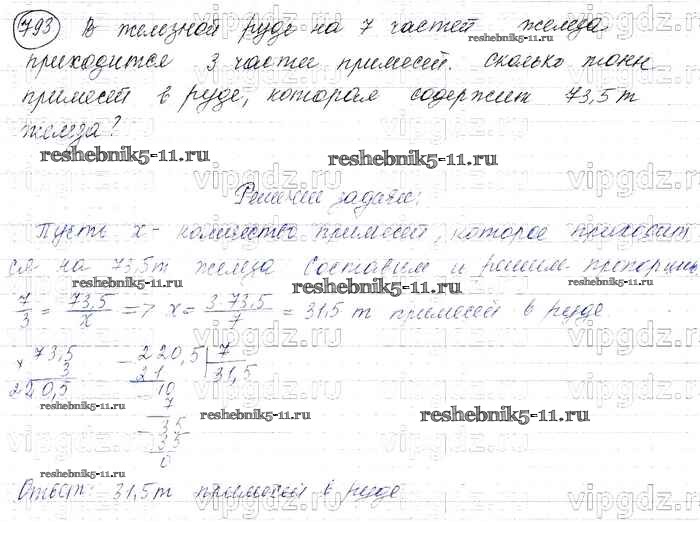 793 В железной руде на 7 частей железа
приходится 3 части примесей. Сколько тонн
примесей в руде, которая содержит 73,5 т
железа?
reshebnik5-11.ru reshebnik5-11.ru
Решение задачи:
Пусть x - количество примесей, которое приходит
ся на 73,5т железа Составим и решим пропорцию
7/3 = 73,5/x => x = 3·73,5/7 = 31,5 т примесей в руде.
reshebnik5-11.ru reshebnik5-11.ru
73,5 220,5 7
× 3 21 31,5
220,5 10
7
35
35
0
reshebnik5-11.ru reshebnik5-11.ru reshebnik5-11.ru
reshebnik5-11.ru reshebnik5-11.ru
Ответ: 31,5т примесей в руде
vipgdz.ru vipgdz.ru vipgdz.ru